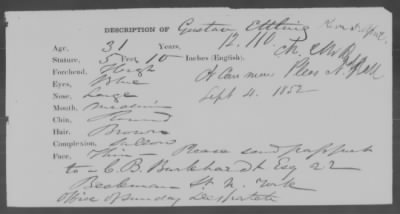 DESCRIPTION OF Gustav Ettling
Age, 31 Years, 12.110.
Stature, 5 Feet 10 Inches (English).
Forehead, High
Eyes, Blue
Nose, Large
Sept 4. 1852
Mouth, Medium
Chin, Round
Hair, Brown
Complexion, Sallow
Face, Thin — Please send passport
to C. B. Burkhardt Esq 22
Beekman St. N. York
Office of Sunday Despatch